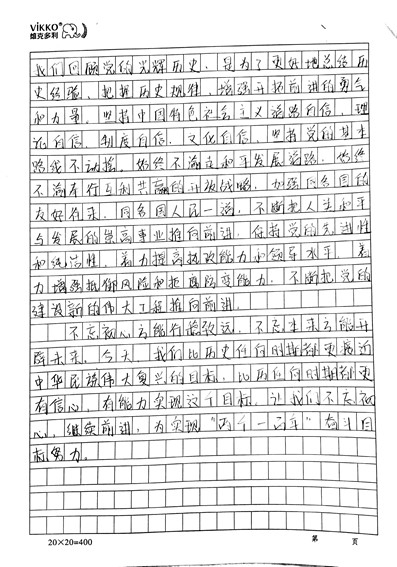 VIKKO®
维克多利
我们回顾党的光辉历史，是为了更好地总结历
史经验、把握历史规律，增强开拓前进的勇气
和力量。坚持中国特色社会主义道路自信、理
论自信、制度自信、文化自信，坚持党的基本
路线不动摇。始终不渝走和平发展道路，始终
不渝奉行互利共赢的开放战略，加强同各国的
友好往来，同各国人民一道，不断把人类和平
与发展的崇高事业推向前进。保持党的先进性
和纯洁性，着力提高执政能力和领导水平，着
力增强抵御风险和拒腐防变能力，不断把党的
建设新的伟大工程推向前进。
不忘初心方能行稳致远，不忘本来方能开
辟未来。今天，我们比历史任何时期都更接近
中华民族伟大复兴的目标，比历史任何时期都更
有信心、有能力实现这个目标。让我们不忘初
心，继续前进，为实现“两个一百年”奋斗目
标努力。
20×20=400
第 页